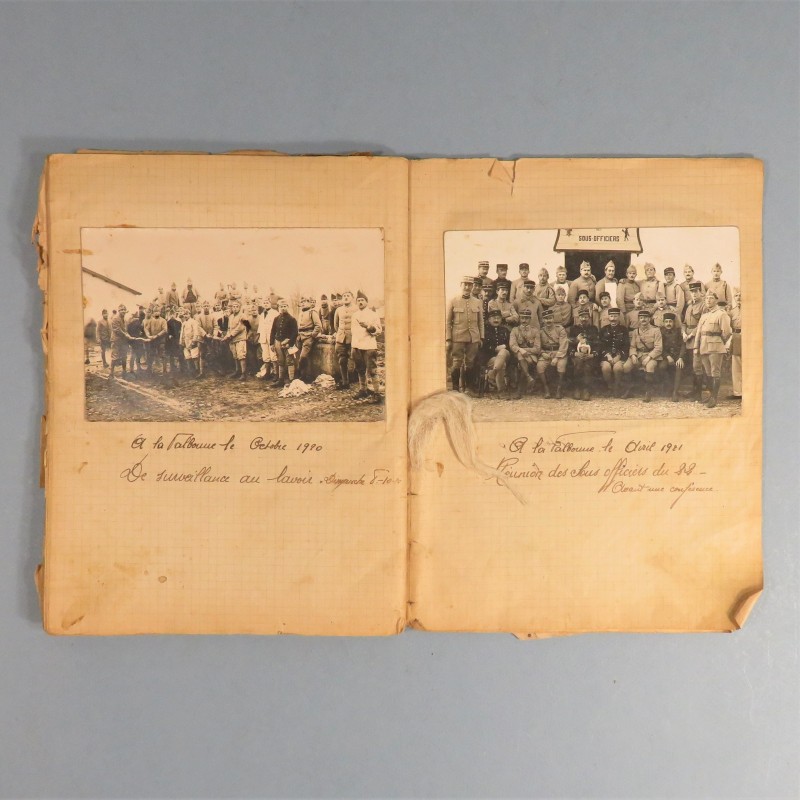 A la Valbonne le Octobre 1920
De surveillance au lavoir
SOUS-OFFICIERS
A la Valbonne le Avril 1921
Réunion des Sous officiers du
Avant une conférence